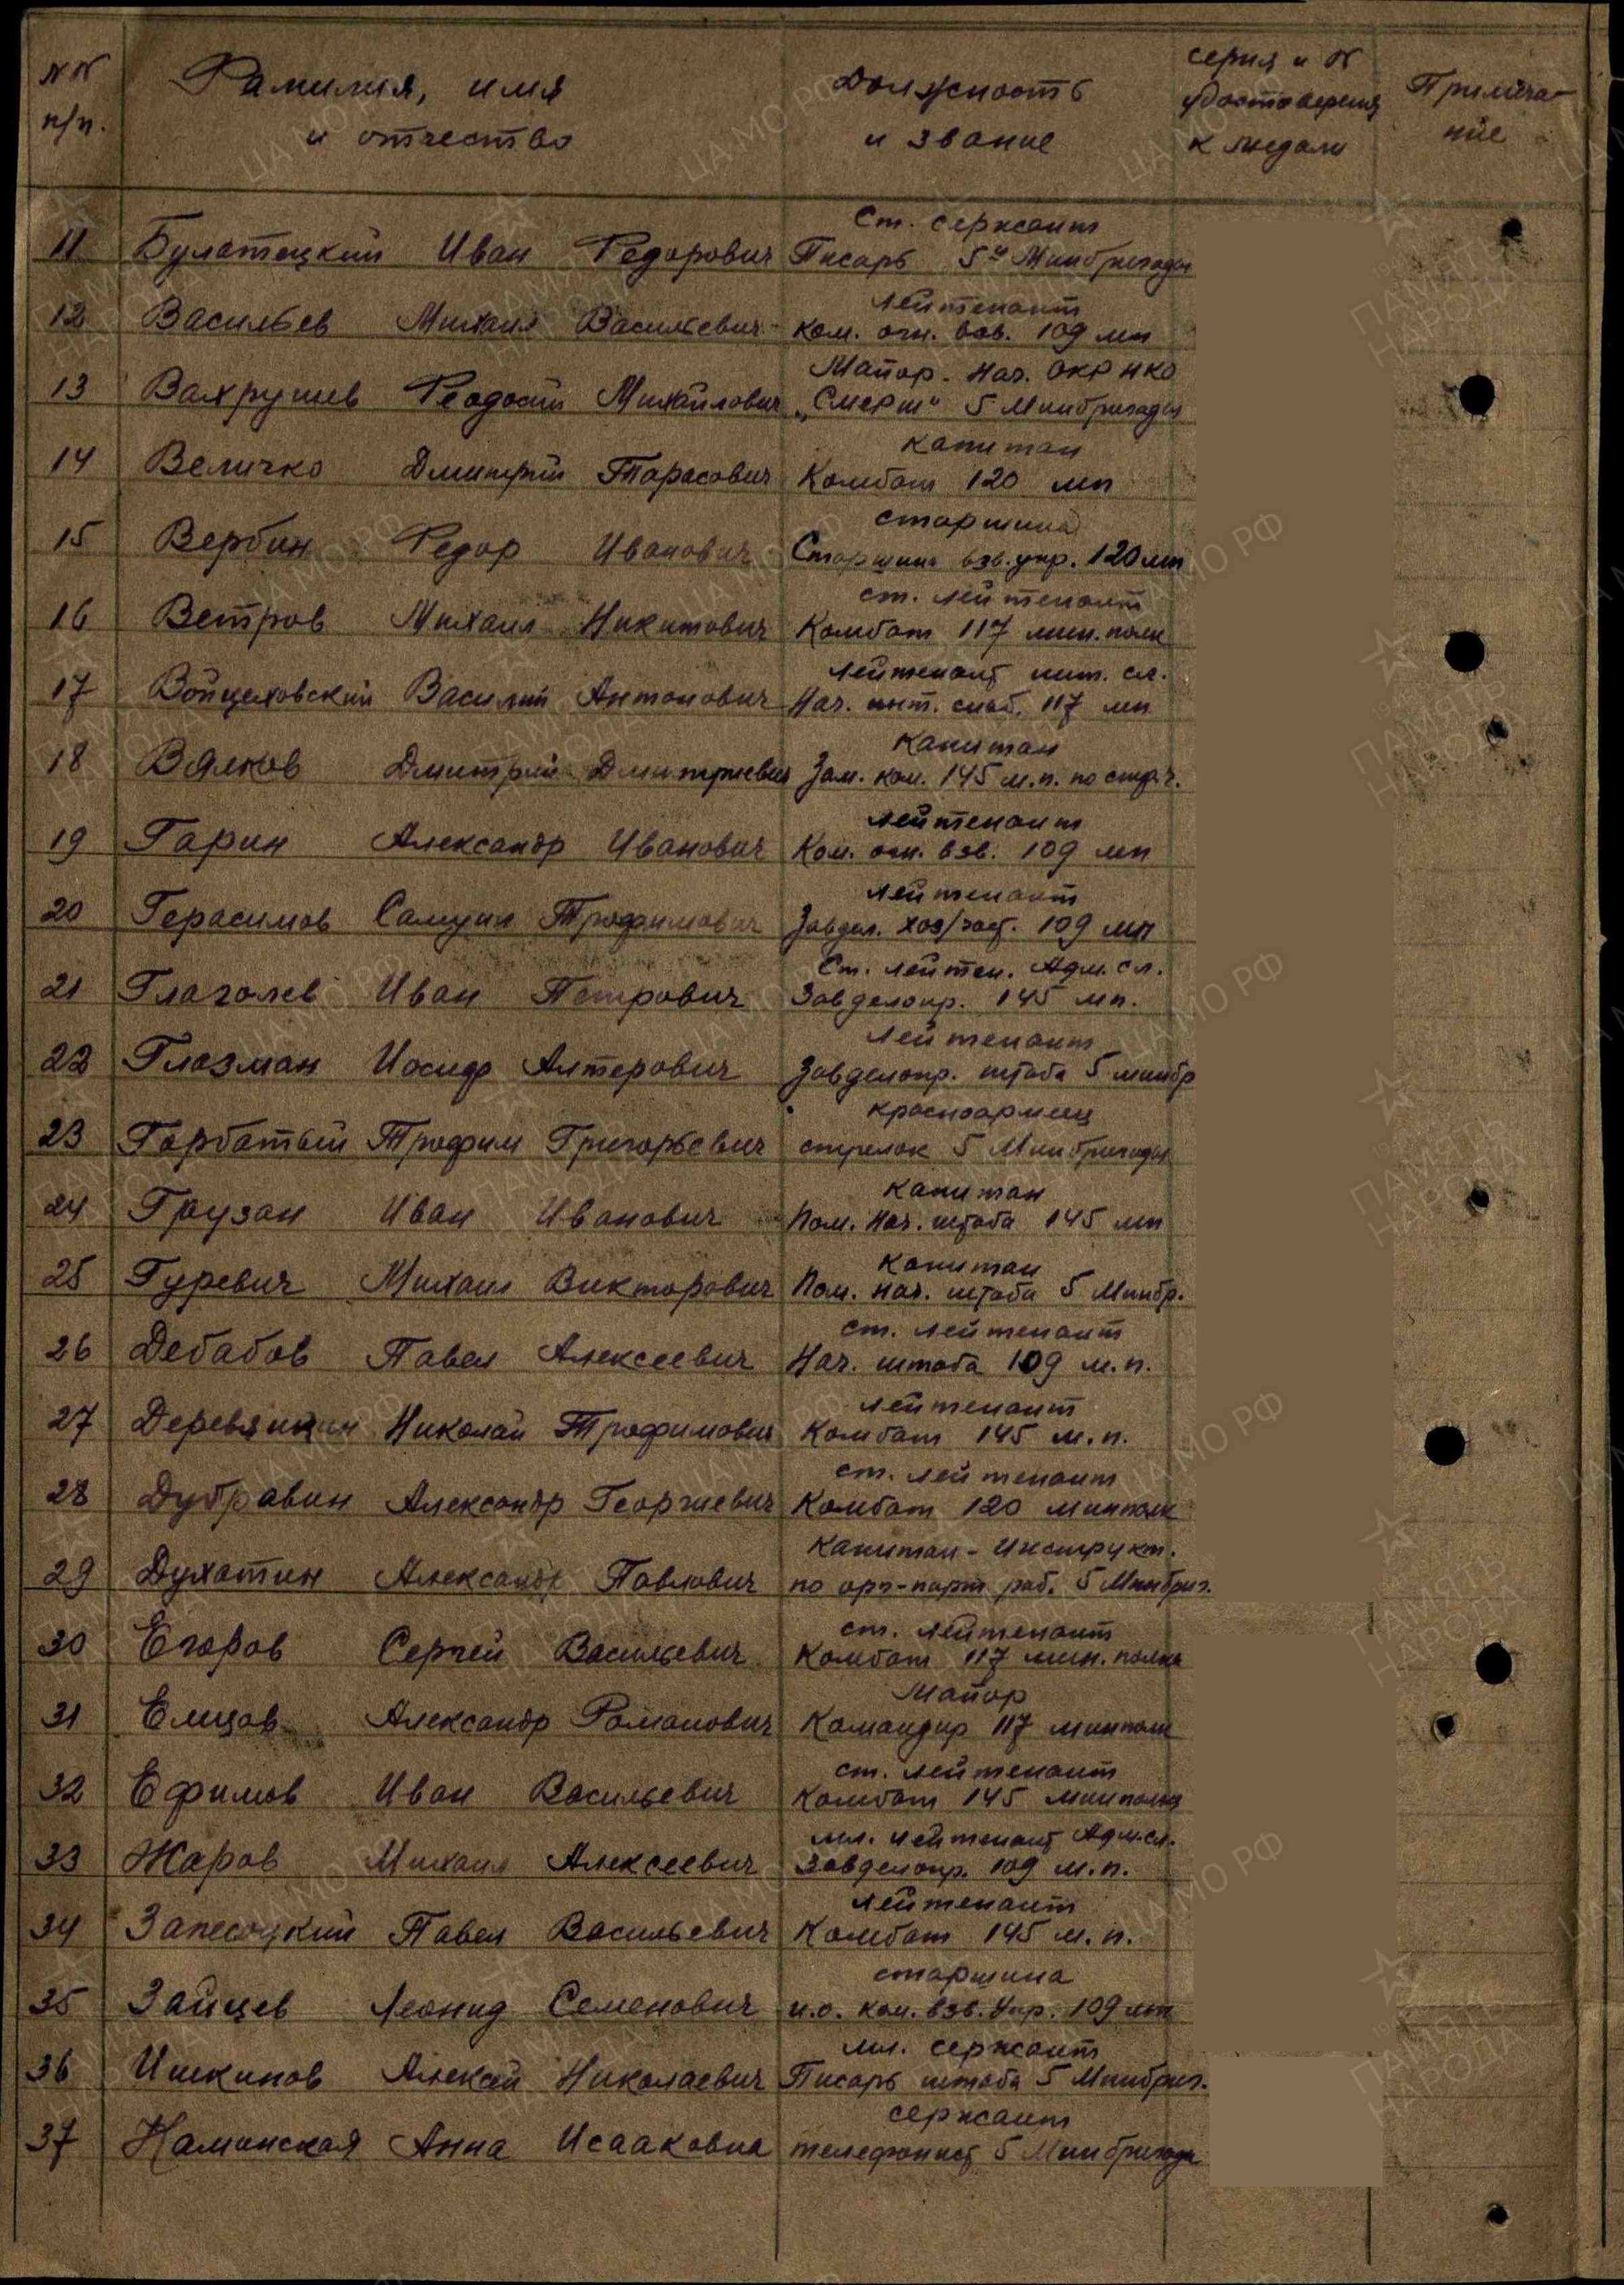 №№ п/п.
Фамилия, имя и отчество
Должность и звание
серия и № удостоверения к медали
Примечание
Ст. сержант
11 Булатецкий Иван Федорович Писарь 5й Минбригады
лейтенант
12 Васильев Михаил Васильевич ком. огн. взв. 109 мп
Майор. Нач. ОКР НКО
13 Вахрушев Феодосий Михайлович „Смерш“ 5 Минбригады
капитан
14 Величко Дмитрий Тарасович Комбат 120 мп
старшина
15 Вербин Федор Иванович Старшина взв. упр. 120 мп
ст. лейтенант
16 Ветров Михаил Никитович Комбат 117 мин. полк
лейтенант инт. сл.
17 Войцеховский Василий Антонович Нач. инт. снаб. 117 мп
капитан
18 Вялков Дмитрий Дмитриевич Зам. ком. 145 м.п. по стр.ч.
лейтенант
19 Гарин Александр Иванович Ком. огн. взв. 109 мп
лейтенант
20 Герасимов Самуил Трофимович Завдел. хоз/част. 109 мп
Ст. лейтен. Адм. сл.
21 Глаголев Иван Петрович Завделопр. 145 мп.
лейтенант
22 Глазман Иосиф Алтерович Завделопр. штаба 5 минбр
красноармеец
23 Горбатый Трофим Григорьевич стрелок 5 Минбригады
капитан
24 Граузан Иван Иванович Пом. Нач. штаба 145 мп
капитан
25 Гуревич Михаил Викторович Пом. нач. штаба 5 Минбр.
ст. лейтенант
26 Дебабов Павел Алексеевич Нач. штаба 109 м.п.
лейтенант
27 Николай Трофимович Комбат 145 м.п.
ст. лейтенант
28 Дубравин Александр Георгиевич Комбат 120 минполк
Капитан - Инструкт.
29 Духатин Александр Павлович по орг-парт раб. 5 Минбриг.
ст. лейтенант
30 Егоров Сергей Васильевич Комбат 117 мин. полка
Майор
31 Елизов Александр Романович Командир 117 минполк
ст. лейтенант
32 Ефимов Иван Васильевич Комбат 145 минполка
мл. лейтенант Адм.сл.
33 Жаров Михаил Алексеевич Завделопр. 109 м.п.
лейтенант
34 Запесоцкий Павел Васильевич Комбат 145 м.п.
старшина
35 Зайцев Леонид Семенович и.о. ком. взв. Упр. 109 мп
мл. сержант
36 Алексей Николаевич Писарь штаба 5 Минбриг.
сержант
37 Каминская Анна Исааковна телефонист 5 Минбригады